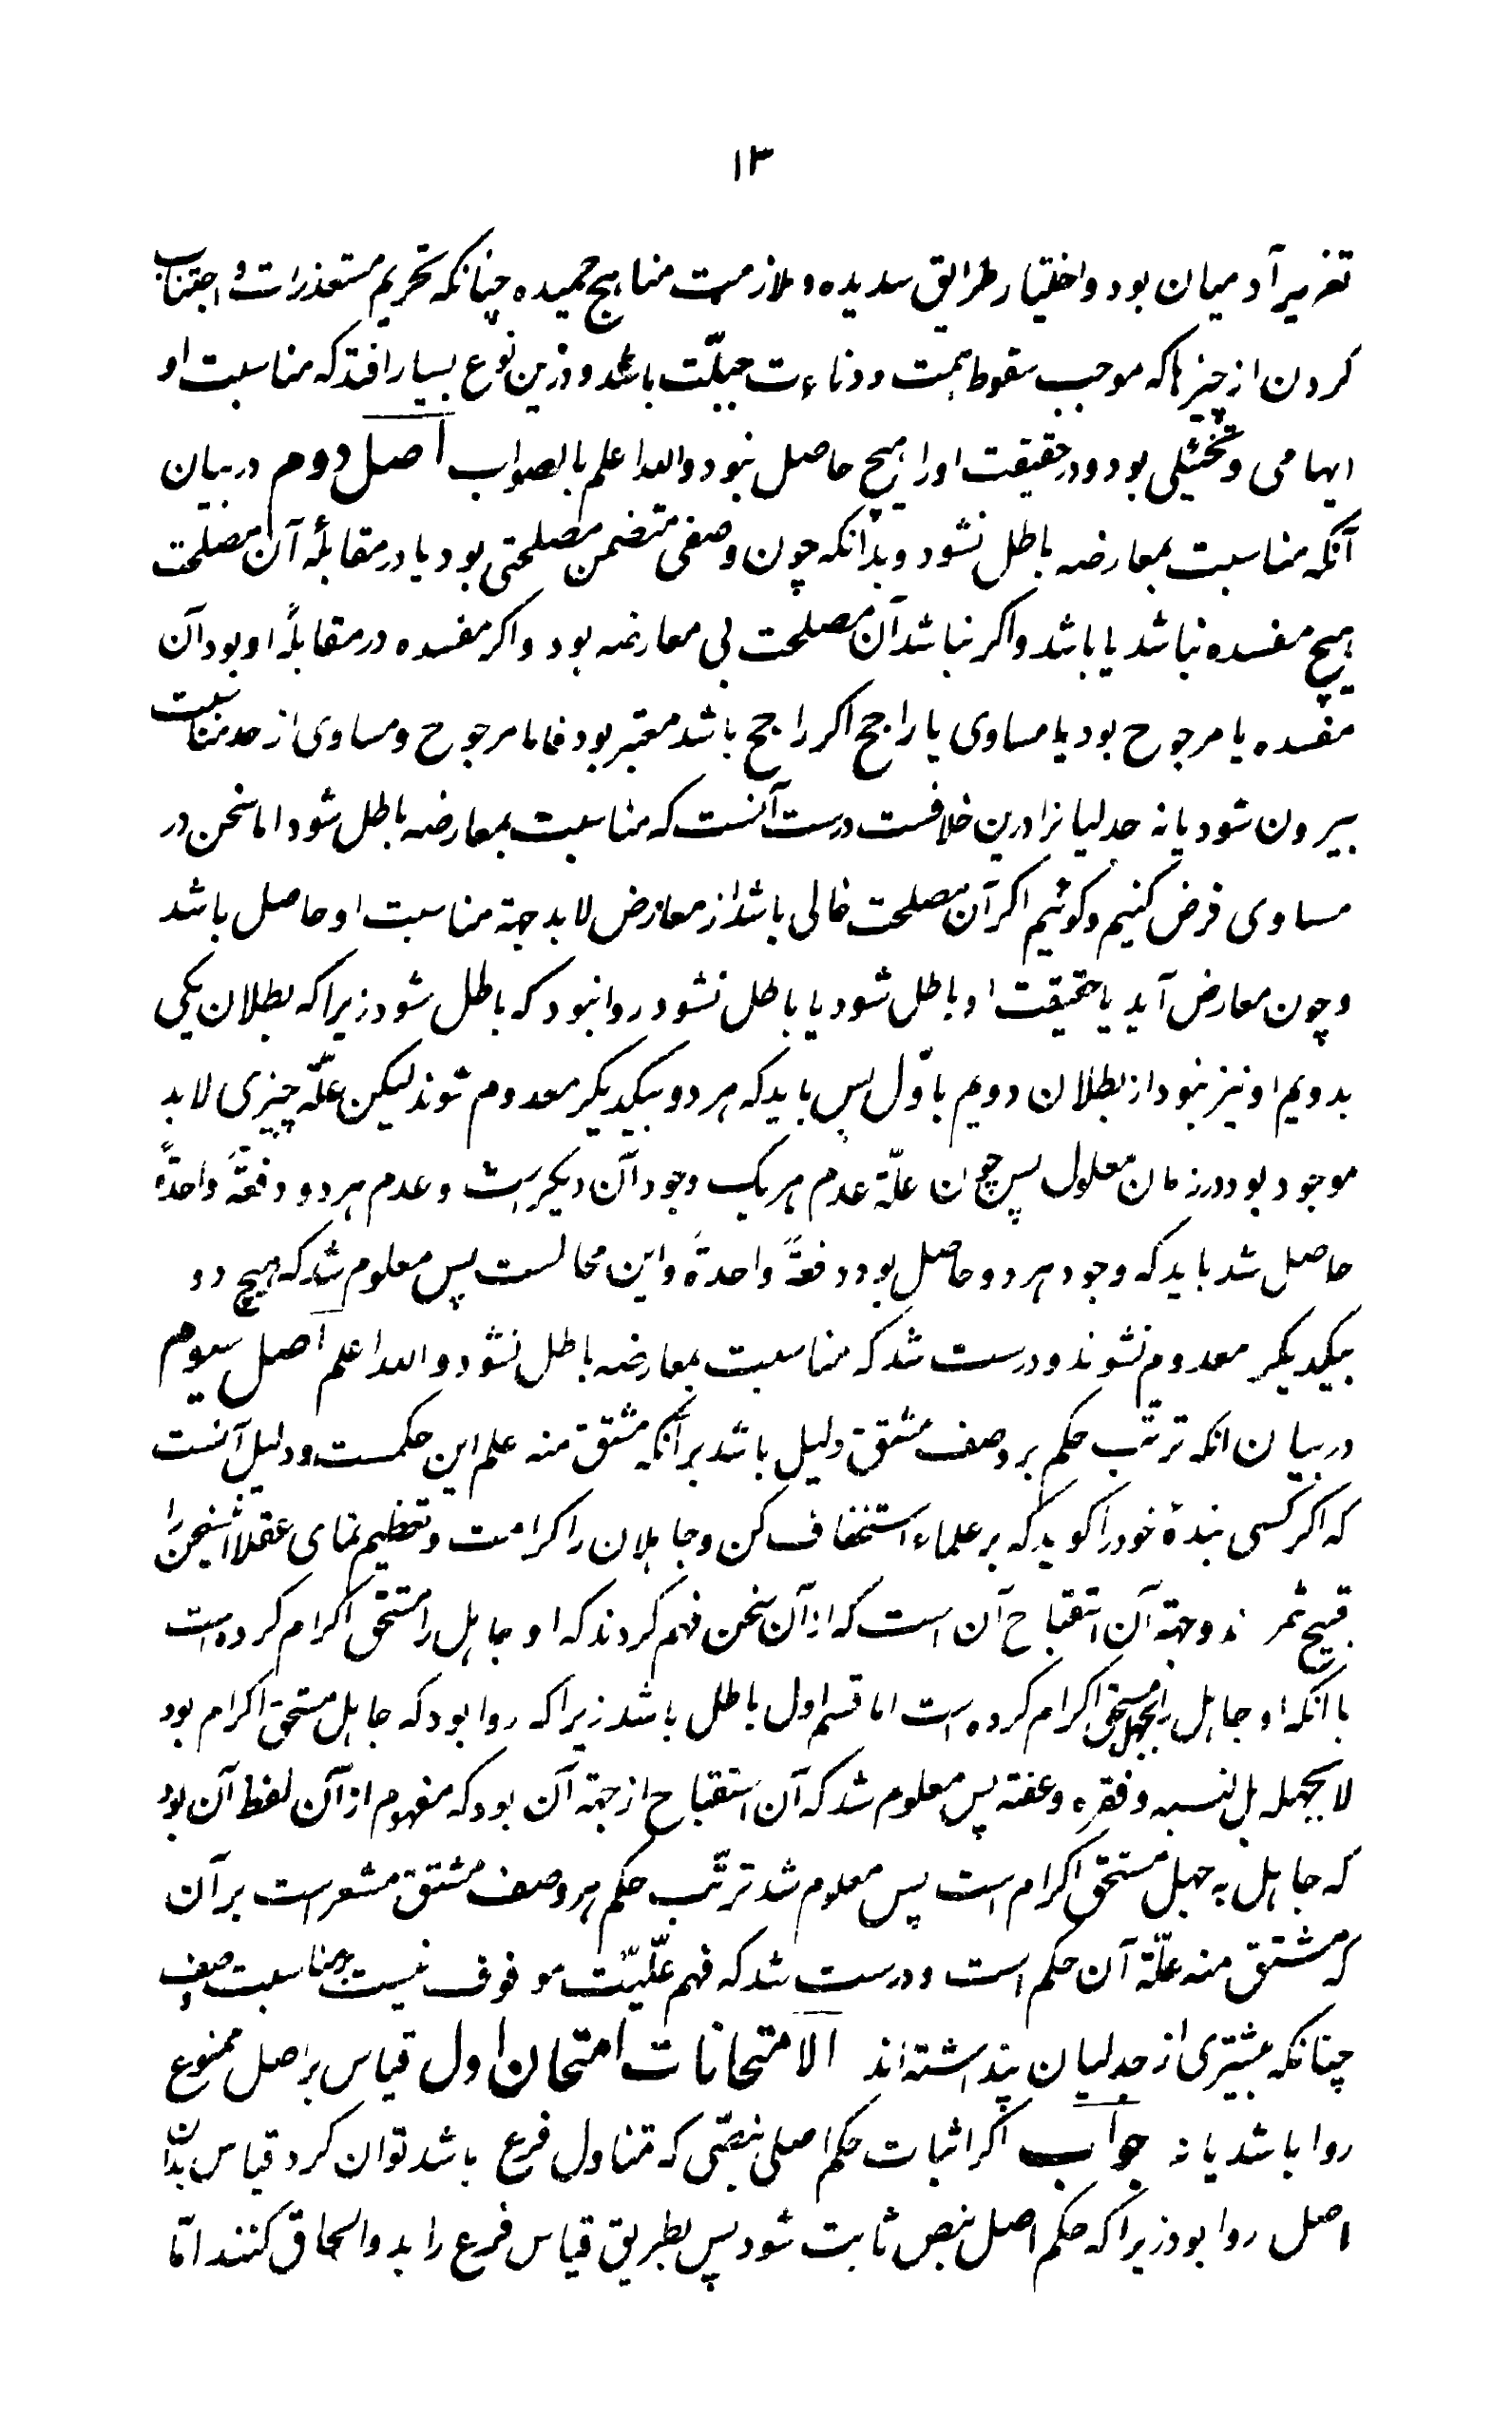 ۱۳
تغریر آدمیان بود و اختیار طرایق سدیده و ملازمت مناهج حمیده چنانکه تحریم مستعذرات و اجتناب
کردن از چیزها که موجب سقوط همت و دناءت جبلّت باشد وزین نوع بسیار افتد که مناسبت او
ایهامی و تخئیلی بود و در حقیقت او را هیچ حاصل نبود والله اعلم بالصواب اصل دوم در بیان
آنکه مناسبت بمعارضه باطل نشود و بدانکه چون وصفی متضمن مصلحتی بود یا در مقابلهٔ آن مصلحت
هیچ مفسده نباشد یا باشد و اکر نباشد آن مصلحت بی معارضه بود و اکر مفسده در مقابلهٔ او بود آن
مفسده یا مرجوح بود یا مساوی یا راجح اکر راجح باشد معتبر بود فاما مرجوح و مساوی از حد مناسبت
بیرون شود یا نه جدلیانرا درین خلافست درست آنست که مناسبت بمعارضه باطل شود اما سخن در
مساوی فرض کنیم و کوئیم اکر آن مصلحت خالی باشد از معارض لابد جهة مناسبت او حاصل باشد
و چون معارض آید یا حقیقت او باطل شود یا باطل نشود روا نبود که باطل شود زیرا که بطلان یکی
بدویم او نیز نبود از بطلان دویم باوّل پس باید که هر دو بیکدیکر معدوم شوند لیکن علّهٔ چیزی لابد
موجود بود در زمان معلول پس چون علّة عدم هر یک وجود آن دیکرست و عدم هر دو دفعةً واحدةً
حاصل شد باید که وجود هر دو حاصل بود دفعةً واحدةً و این محالست پس معلوم شد که هیچ دو
بیکدیکر معدوم نشوند و درست شد که مناسبت بمعارضه باطل نشود والله اعلم اصل سیوم
در بیان انکه ترتّب حکم بر وصف مشتق دلیل باشد بر آنکه مشتق منه علم این حکمست و دلیل آنست
که اکر کسی بندهٔ خود را کوید که بر علماء استخفاف کن و جاهلان را کرامت و تعظیم نمای عقلا این سخن را
قبیح شمرند و جهة آن استقباح آن است که از آن سخن فهم کردند که او جاهل را مستحق اکرام کرده است
یا آنکه او جاهل را بجهل مستحق اکرام کرده است اما قسم اول باطل باشد زیرا که روا بود که جاهل مستحق اکرام بود
لا بجهله بل لنسبه و فقره و عفته پس معلوم شد که آن استقباح از جهة آن بود که مفهوم از آن لفظ آن بود
که جاهل به جهل مستحق اکرام است پس معلوم شد ترتّب حکم بر وصف مشتق مشعر است بر آن
که مشتق منه علّة آن حکم است و درست شد که فهم علّیّت موقوف نیست بر مناسبت وصف
چنانکه بیشتری از جدلیان پنداشته اند الامتحانات امتحان اول قیاس بر اصل ممنوع
روا باشد یا نه جواب اکر اثبات حکم اصلی بنصّی که متناول فرع باشد توان کرد قیاس بدان
اصل روا بود زیرا که حکم اصل بنص ثابت شود پس بطریق قیاس فرع را بدو الحاق کنند امّا